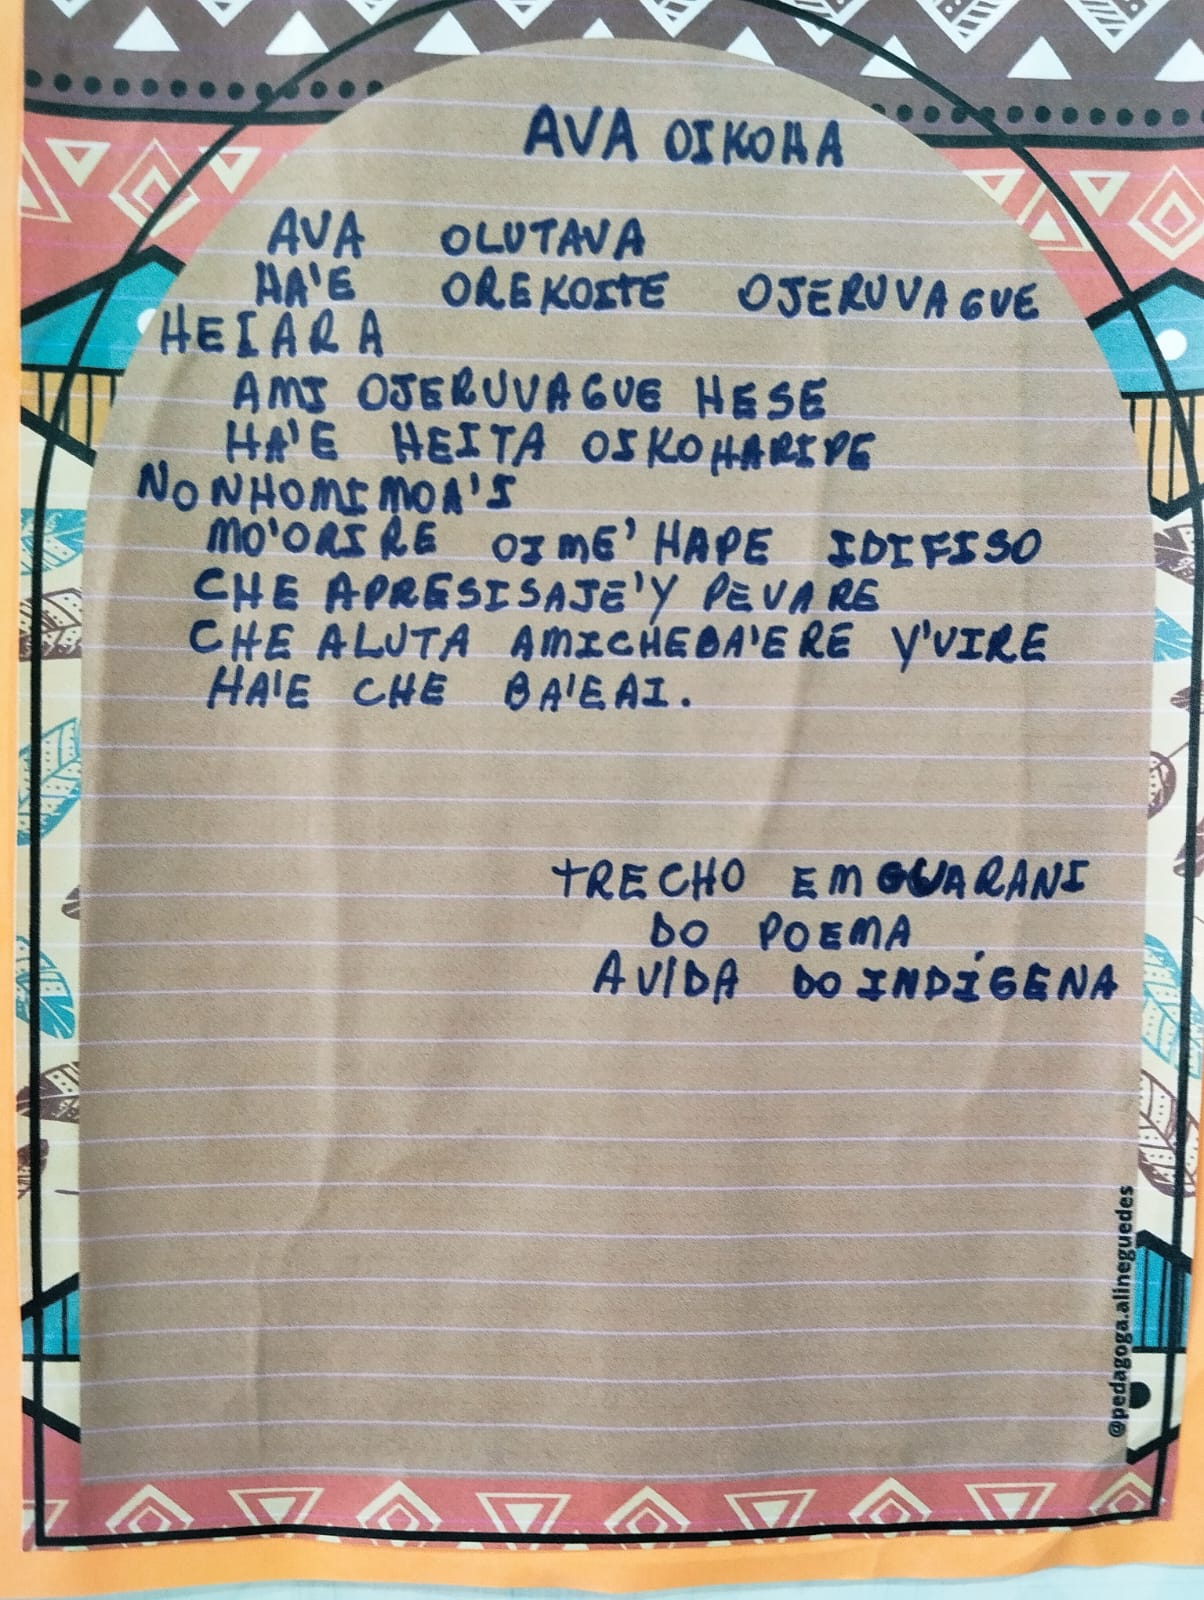 AVA OIKOHA
AVA OLUTAVA
HA'E OREKOITE OJERUVAGUE
HEIARA
AMI OJERUVAGUE HESE
HA'E HEITA OIKOHARIPE
NONHOMIMOA'I
MO'ORIRE OIME'HAPE IDIFISO
CHE APRESISAJE'Y PEVARE
CHE ALUTA AMICHEBA'ERE Y'VIRE
HA'E CHE BA'EAI.
TRECHO EM GUARANI
DO POEMA
A VIDA DO INDÍGENA
@pedagoga.alineguedes